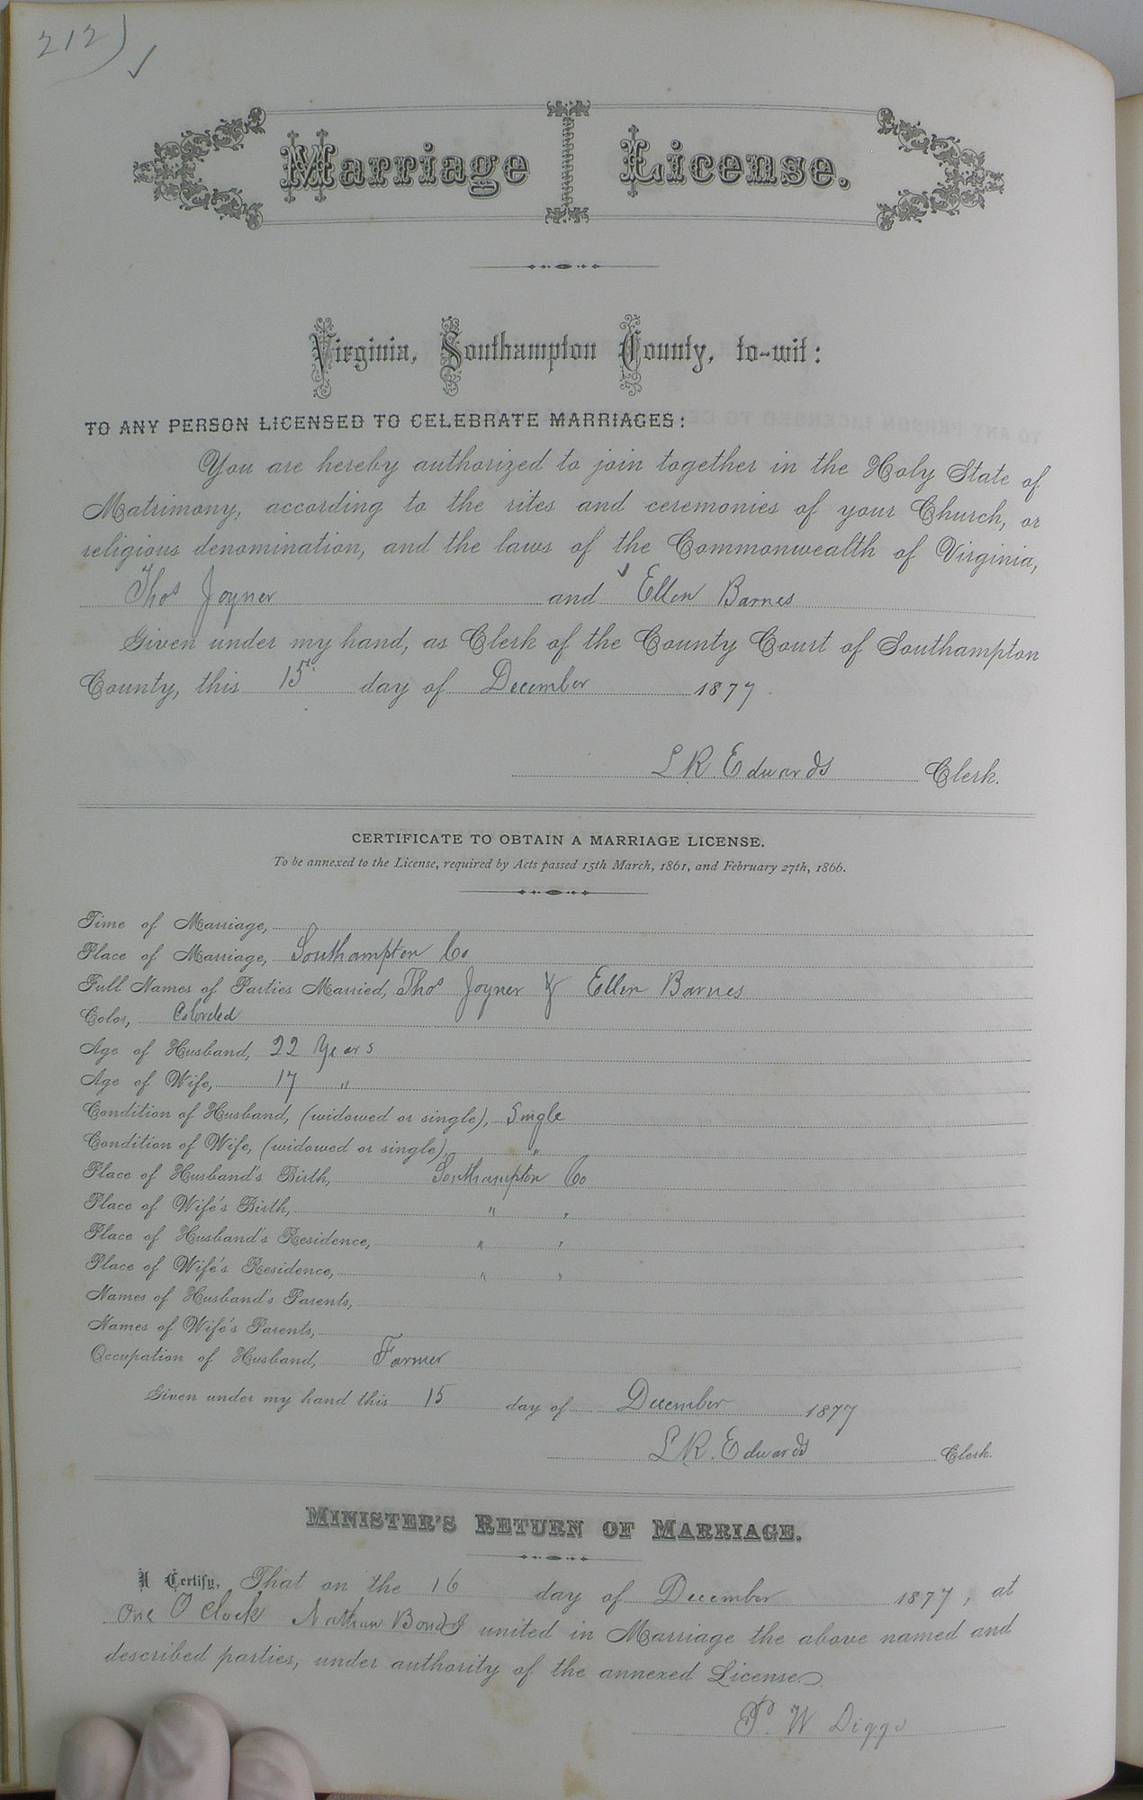 212)
Marriage License.
Virginia, Southampton County, to-wit:
TO ANY PERSON LICENSED TO CELEBRATE MARRIAGES:
You are hereby authorized to join together in the Holy State of
Matrimony, according to the rites and ceremonies of your Church, or
religious denomination, and the laws of the Commonwealth of Virginia,
Thos Joyner and Ellen Barnes
Given under my hand, as Clerk of the County Court of Southampton
County, this 15 day of December 1877
L R. Edwards Clerk.
CERTIFICATE TO OBTAIN A MARRIAGE LICENSE.
To be annexed to the License, required by Acts passed 15th March, 1861, and February 27th, 1866.
Time of Marriage,
Place of Marriage, Southampton Co
Full Names of Parties Married, Thos Joyner & Ellen Barnes
Color,
Age of Husband, 22 Years
Age of Wife, 17 "
Condition of Husband, (widowed or single), Single
Condition of Wife, (widowed or single) "
Place of Husband's Birth, Southampton Co
Place of Wife's Birth, " "
Place of Husband's Residence, " "
Place of Wife's Residence, " "
Names of Husband's Parents,
Names of Wife's Parents,
Occupation of Husband, Farmer
Given under my hand this 15 day of December 1877
L R. Edwards Clerk.
MINISTER'S RETURN OF MARRIAGE.
I Certify, That on the 16 day of December 1877, at
One O Clock Nathan united in Marriage the above named and
described parties, under authority of the annexed License.
P. W Diggs